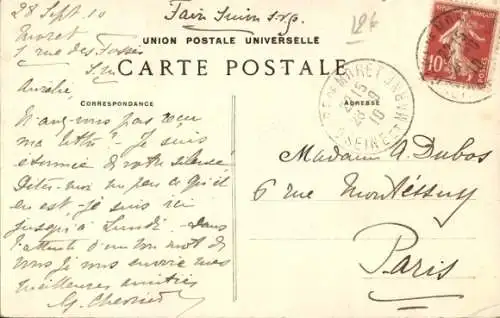 28 Sept. 10
Faire Suivre s.v.p.
126
Moret
5 rue des Fossés
S.M.
UNION POSTALE UNIVERSELLE
CARTE POSTALE
CORRESPONDANCE
ADRESSE
N'avez vous pas reçu
ma lettre? - Je suis
étonnée de votre silence
Dites-moi un peu ce qu'il
en est - je suis ici
jusqu'à Lundi - Dans
l'attente d'un bon mot de
vous je vous envoie mes
meilleures amitiés
Madame A. Dubos
6 rue Montessuy
Paris
MORET
15
28 9
10
POSTES
10